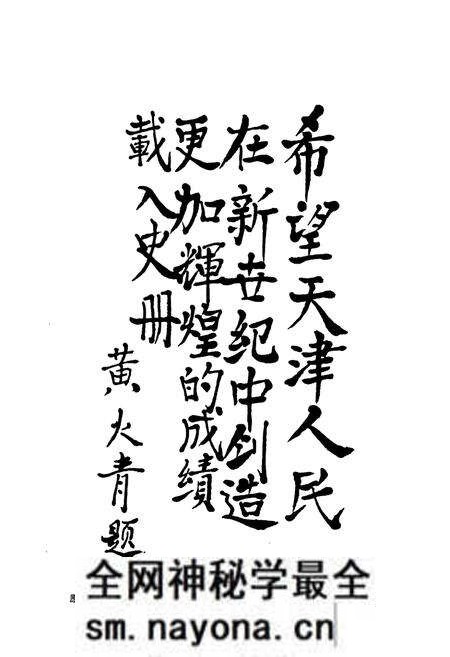 希望天津人民
在新世纪中创造
更加輝煌的成績
載入史册
黄火青题
全网神秘学最全
sm.nayona.cn